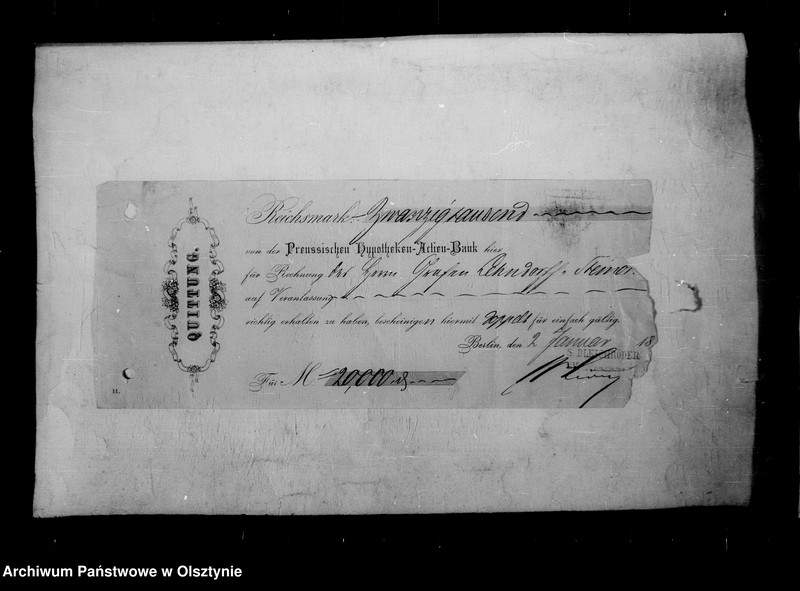 QUITTUNG.
Reichsmark Zwanzigtausend
von der Preussischen Hypotheken-Actien-Bank hier
für Rechnung des Herrn Grafen Lehndorff
auf Veranlassung
richtig erhalten zu haben, bescheinigen hiermit doppelt für einfach gültig.
Berlin, den 2 Januar 18
S. BLEICHRÖDER
Für M 20,000
Archiwum Państwowe w Olsztynie